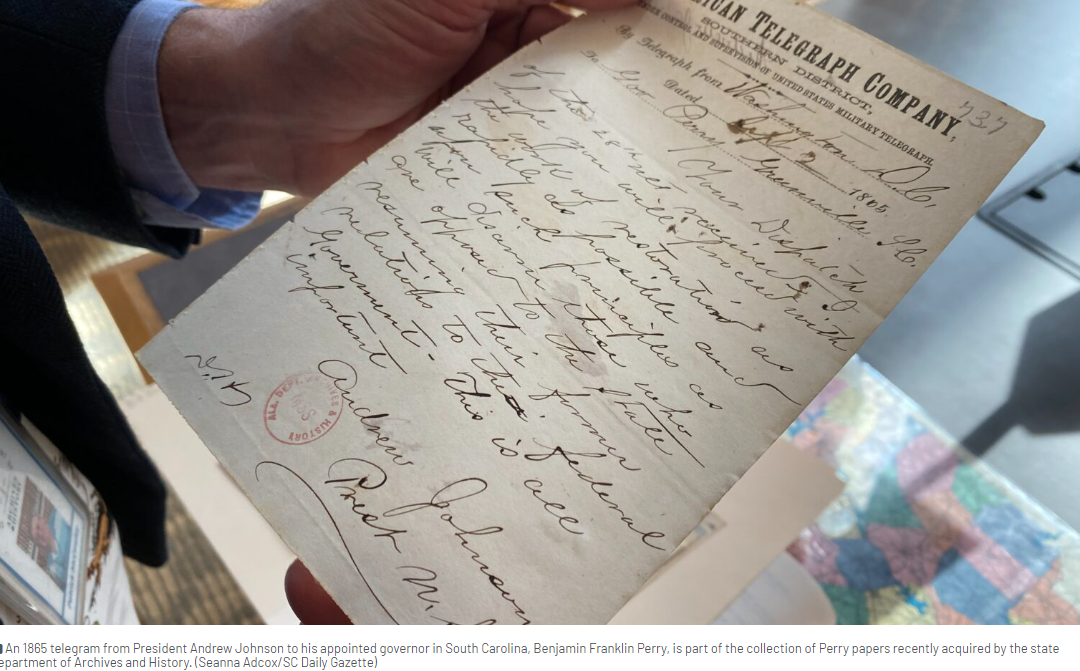 ICAN TELEGRAPH COMPANY,
SOUTHERN DISTRICT,
UNDER CONTROL AND SUPERVISION OF UNITED STATES MILITARY TELEGRAPH.
737
By Telegraph from Washington D.C.
Dated Sept 2 1865.
To Gov Perry Greenville SC.
Your Dispatch
of the 28 inst received. I
hope you will proceed with
the work of restoration as
rapidly as possible and
upon such principles as
will disarm those who
are opposed to the State
resuming their former
relations to the federal
Government. This is all
important
Andrew Johnson
Prest U.
ALA. DEPT. ARCHIVES & HISTORY
An 1865 telegram from President Andrew Johnson to his appointed governor in South Carolina, Benjamin Franklin Perry, is part of the collection of Perry papers recently acquired by the state
epartment of Archives and History. (Seanna Adcox/SC Daily Gazette)